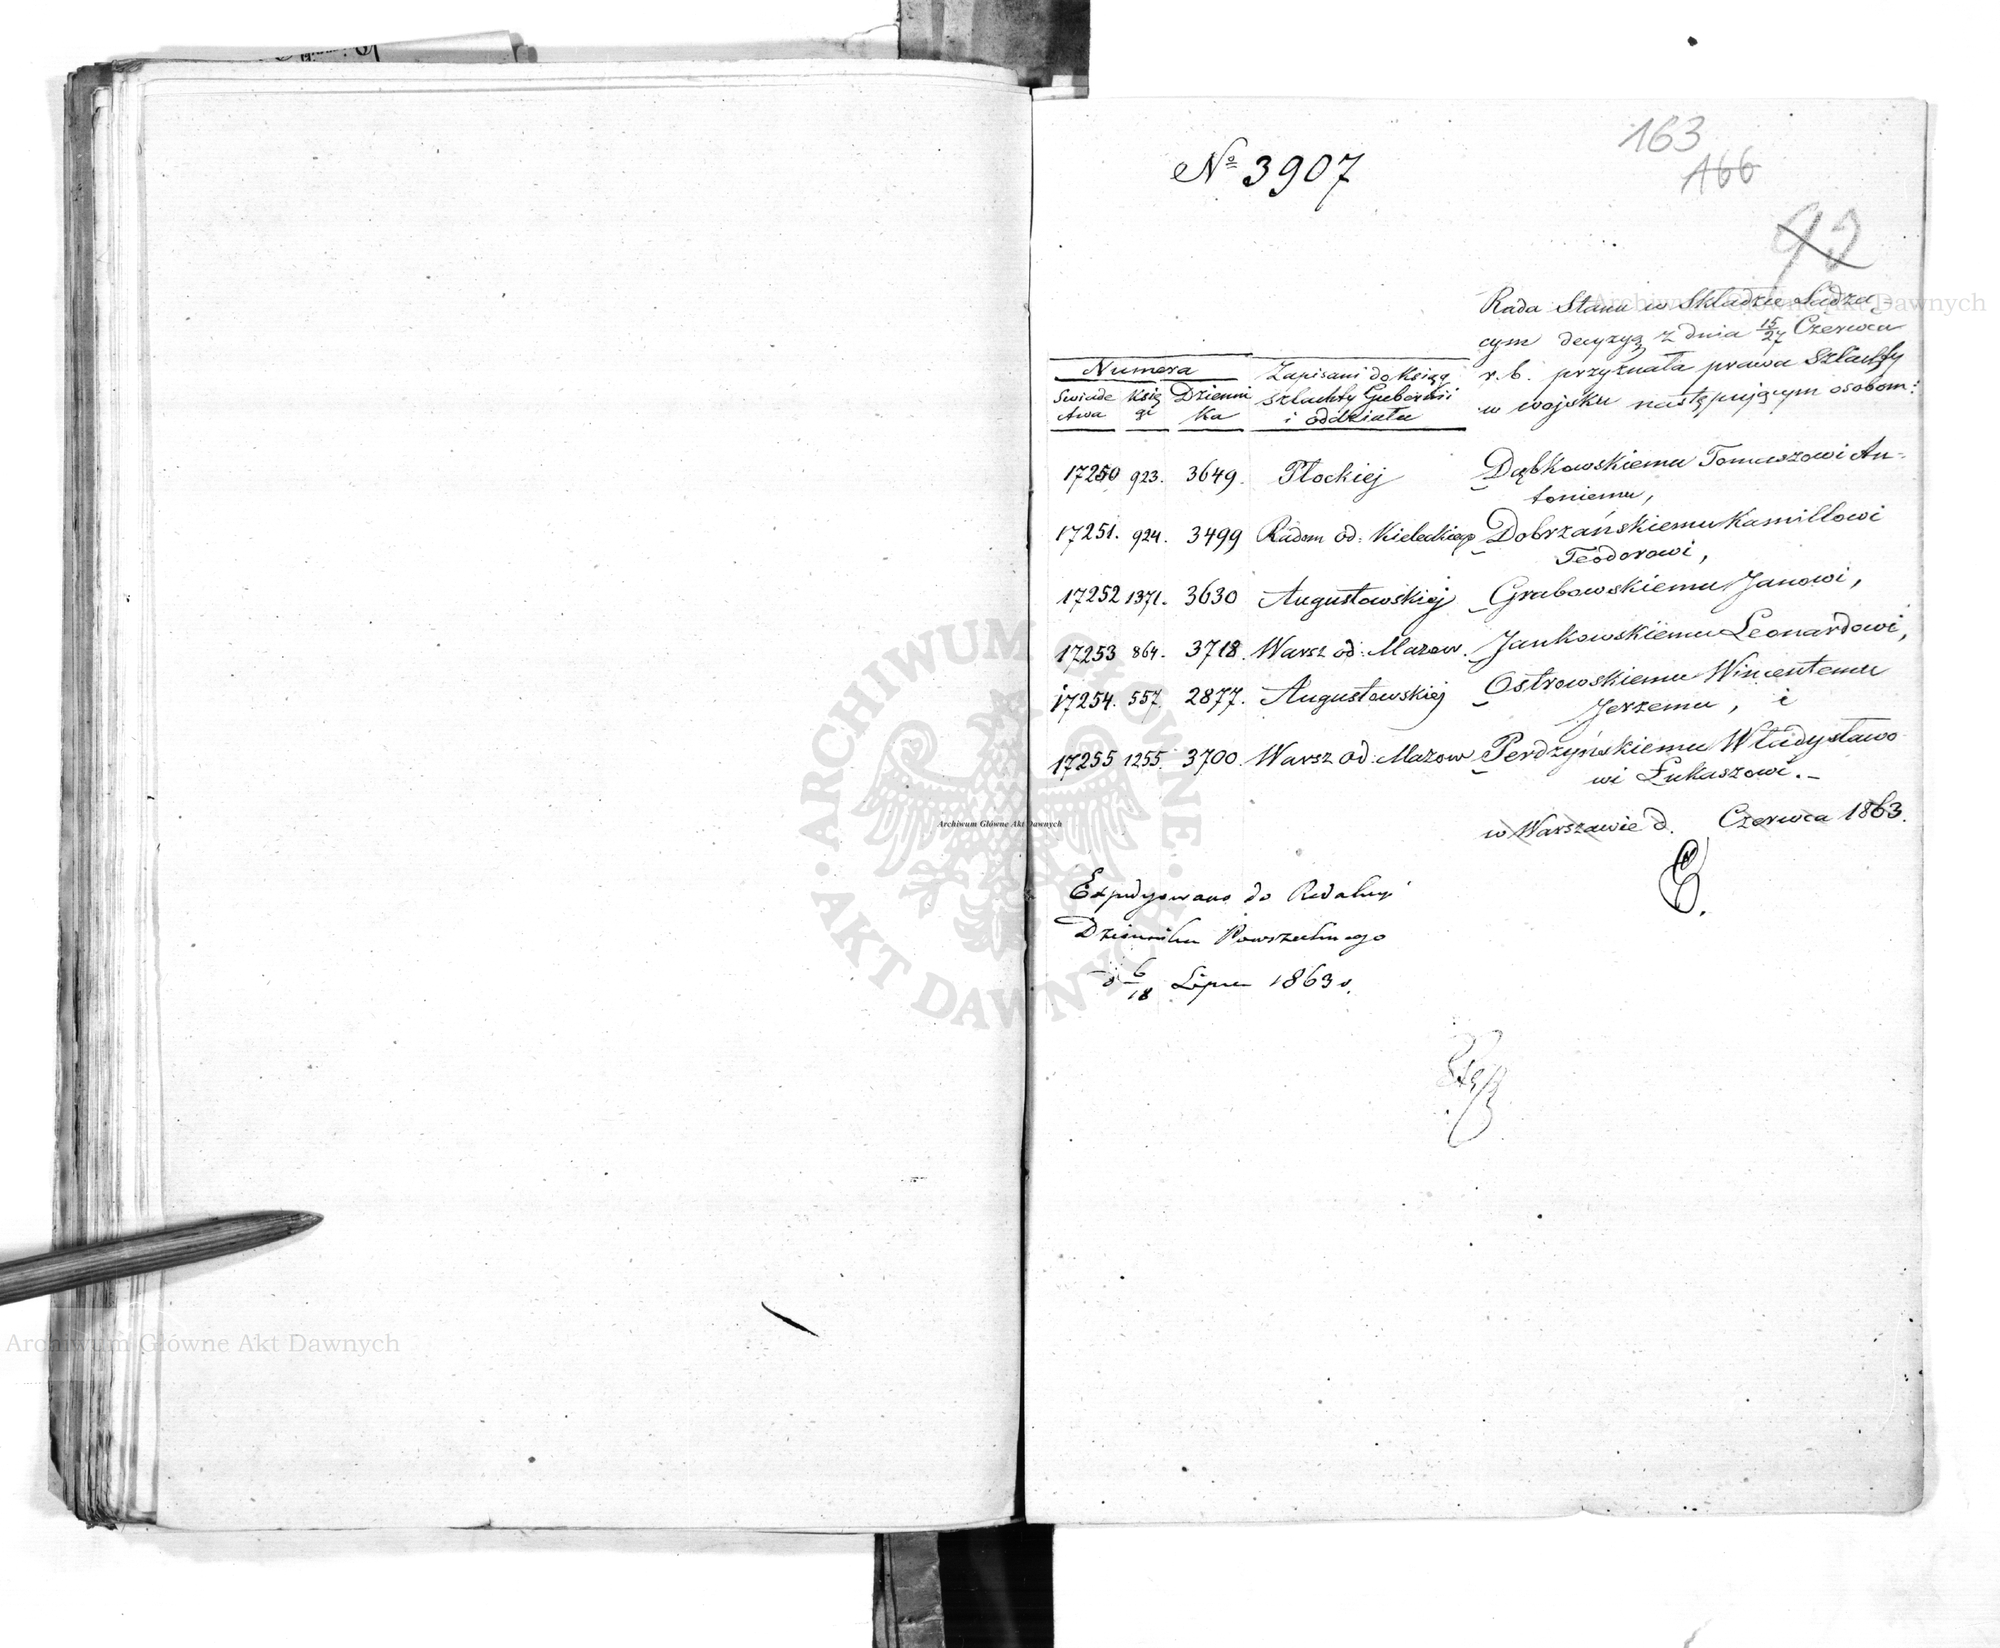 163
166
No 3907
92
Rada Stanu w Składzie Sądzą-
cym decyzyą z dnia 15/27 Czerwca
r. b. przyznała prawa Szlachty
w wojsku następującym osobom:
Numera
Zapisani do Ksiąg
Swiade
ctwa
Księ
gi
Dzienni
ka
szlachty Gubernii
i oddziału
17250 923. 3649. Płockiej Dąbkowskiemu Tomaszowi An-
toniemu,
17251. 924. 3499 Radom od: Kieleckiego Dobrzańskiemu Kamillowi
Teodorowi,
17252 1371. 3630 Augustowskiej Grabowskiemu Janowi,
17253 864. 3718. Warsz od: Mazow. Jankowskiemu Leonardowi,
17254. 557. 2877. Augustowskiej Ostrowskiemu Wincentemu
Jerzemu, i
17255 1255. 3700. Warsz od: Mazow Perdzyńskiemu Władysławo
wi Łukaszowi.-
w Warszawie d. Czerwca 1863.
Expedyowano do Redakcyi
Dziennika Powszechnego
d 6/18 Lipca 1863 r.
Archiwum Główne Akt Dawnych
ARCHIWUM GŁÓWNE
AKT DAWNYCH
Archiwum Główne Akt Dawnych
Archiwum Główne Akt Dawnych